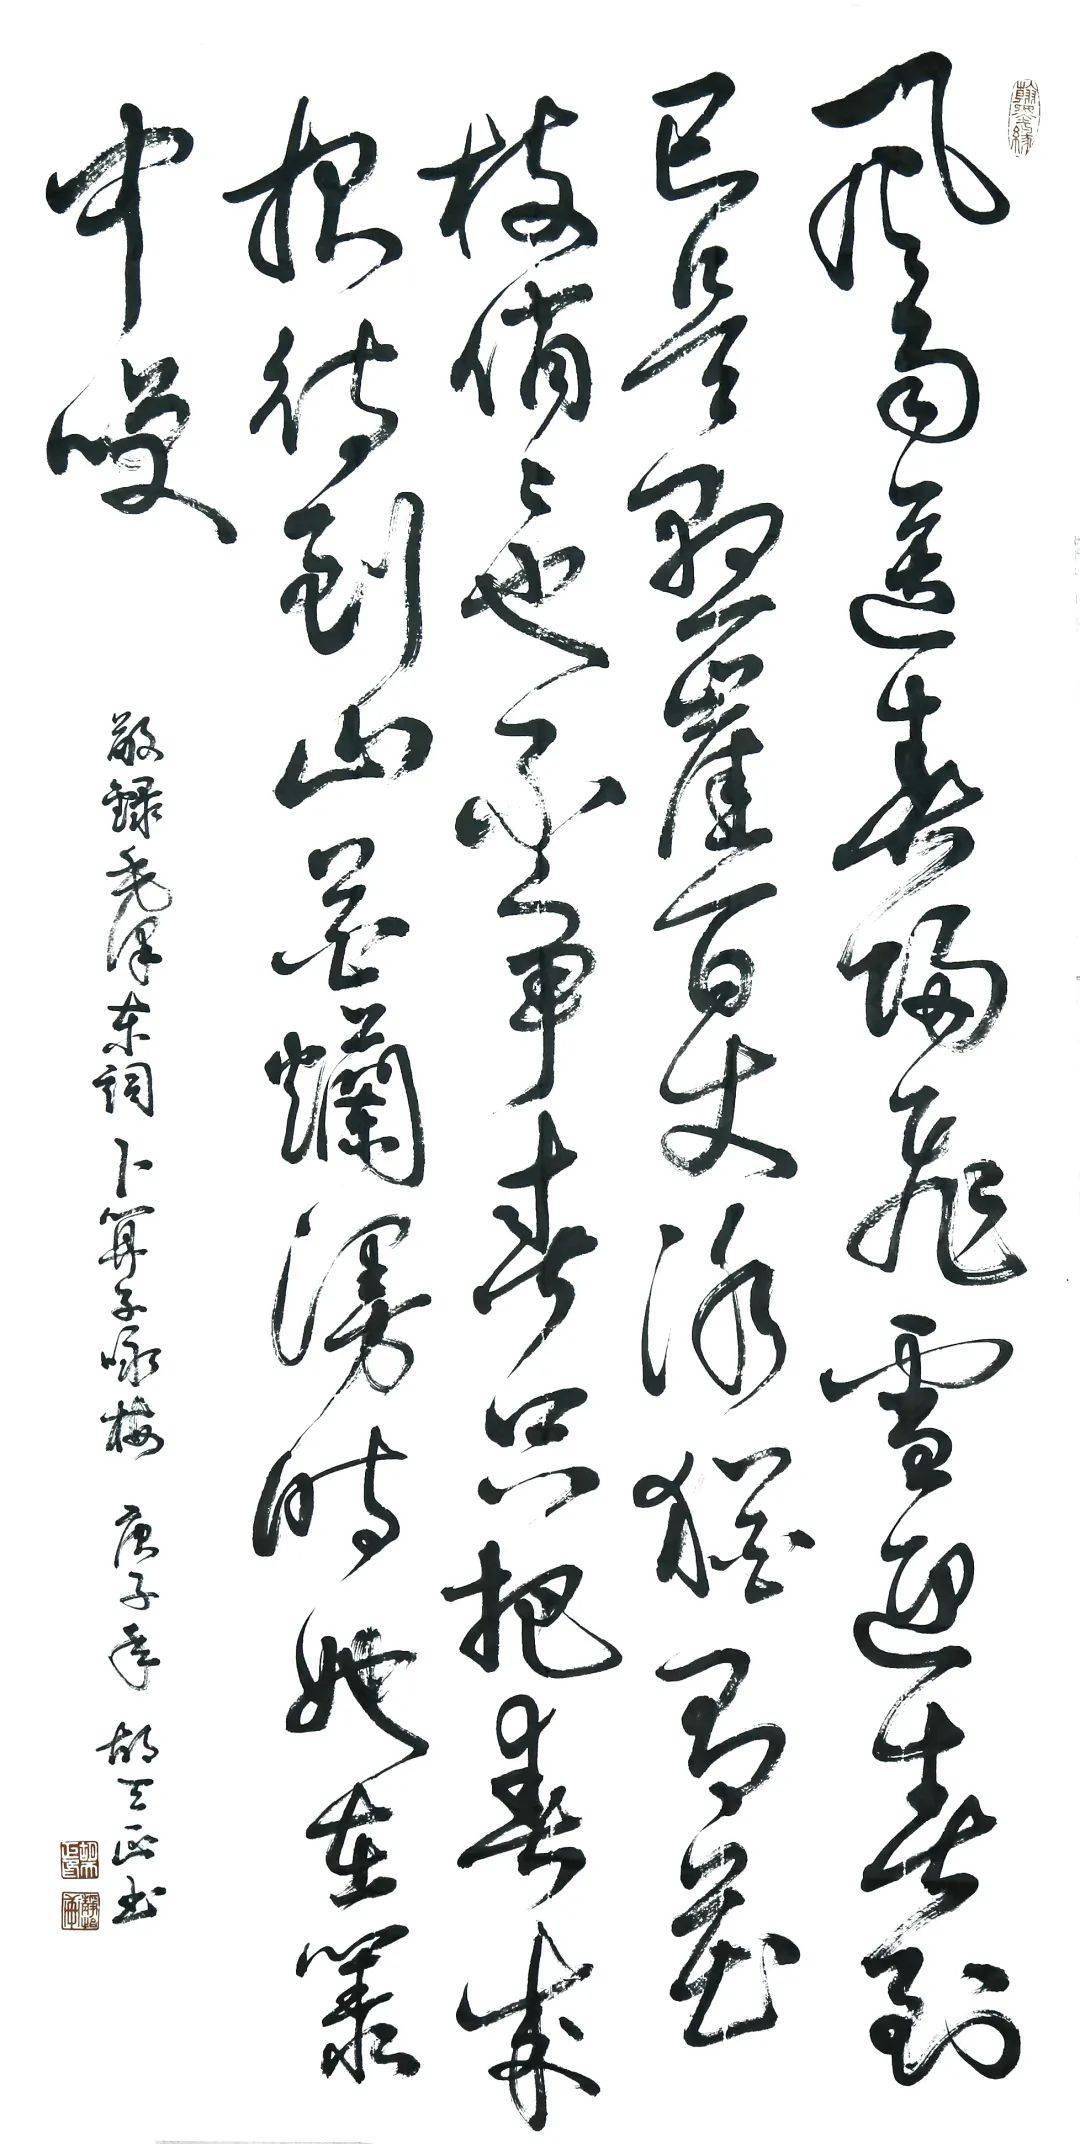 風雨送春歸飛雪迎春到
已是懸崖百丈冰猶有花
枝俏々也不争春只把春来
报待到山花爛漫時她在叢
中咲
敬録毛泽东詞卜算子咏梅 庚子年 胡天正书